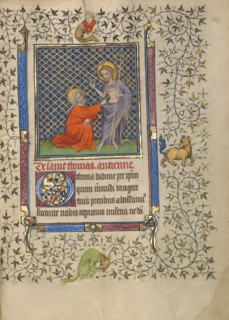 De saint thomas. antienne.
O thoma didime per xpm
quem meruisti tangere
precibus
succurre nobis miseris ne